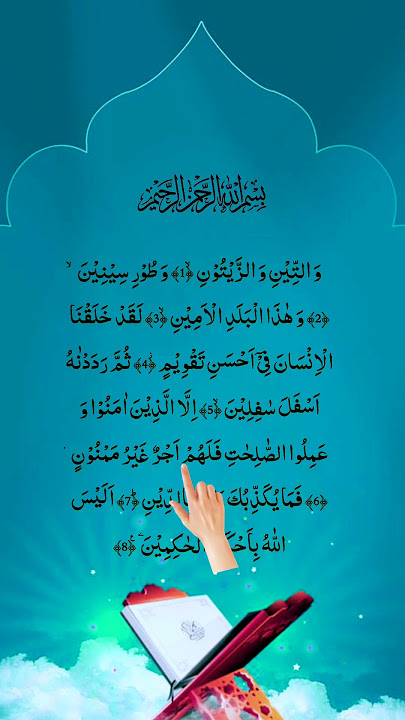 بِسْمِ اللّٰهِ الرَّحْمٰنِ الرَّحِيْمِ
وَالتِّيْنِ وَالزَّيْتُوْنِ ۙ﴿1﴾ وَطُوْرِ سِيْنِيْنَ ۙ
﴿2﴾ وَهٰذَا الْبَلَدِ الْاَمِيْنِ ۙ﴿3﴾ لَقَدْ خَلَقْنَا
الْاِنْسَانَ فِيْۤ اَحْسَنِ تَقْوِيْمٍ ۫﴿4﴾ ثُمَّ رَدَدْنٰهُ
اَسْفَلَ سٰفِلِيْنَ ۙ﴿5﴾ اِلَّا الَّذِيْنَ اٰمَنُوْا وَ
عَمِلُوا الصّٰلِحٰتِ فَلَهُمْ اَجْرٌ غَيْرُ مَمْنُوْنٍ ؕ
﴿6﴾ فَمَا يُكَذِّبُكَ بِالدِّيْنِ ؕ﴿7﴾ اَلَيْسَ
اللّٰهُ بِاَحْكَمِ الْحٰكِمِيْنَ ۠﴿8﴾